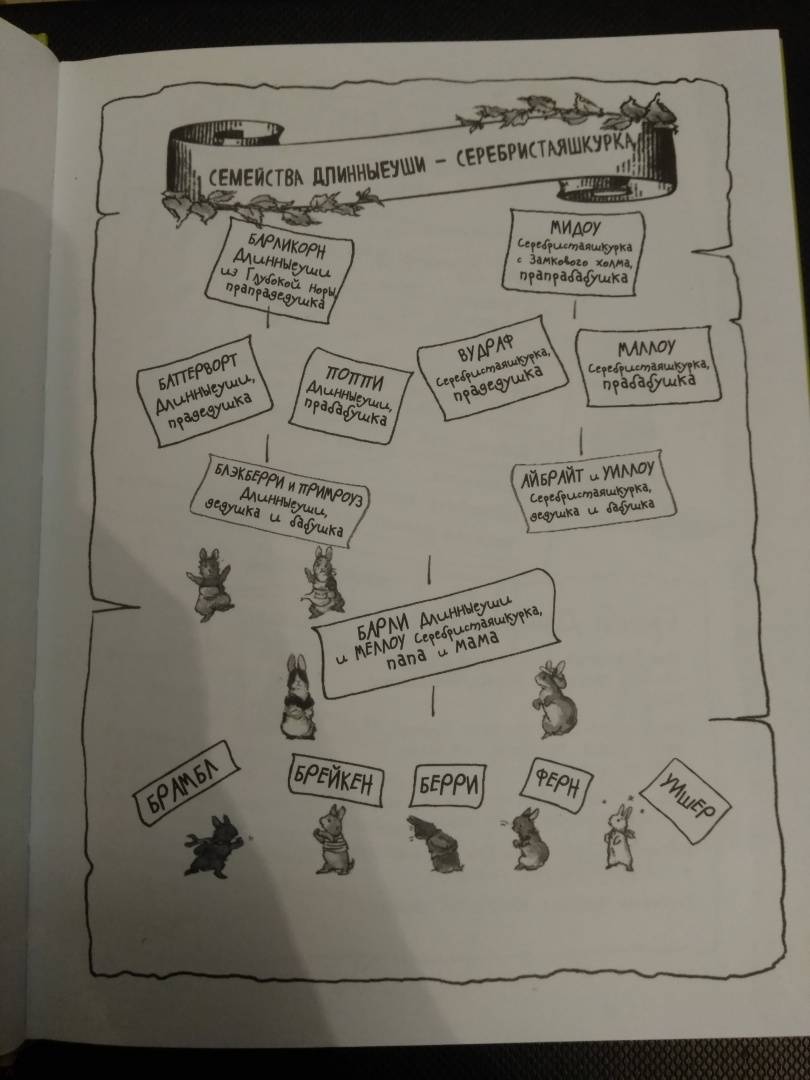 СЕМЕЙСТВА ДЛИННЫЕУШИ – СЕРЕБРИСТАЯШКУРКА
БАРЛИКОРН
Длинныеуши
из Глубокой Норы,
прапрадедушка
МИДОУ
Серебристаяшкурка
с Замкового холма,
прапрабабушка
БАТТЕРВОРТ
Длинныеуши,
прадедушка
ПОППИ
Длинныеуши,
прабабушка
ВУДРАФ
Серебристаяшкурка,
прадедушка
МАЛЛОУ
Серебристаяшкурка,
прабабушка
БЛЭКБЕРРИ и ПРИМРОУЗ
Длинныеуши,
дедушка и бабушка
АЙБРАЙТ и УИЛЛОУ
Серебристаяшкурка,
дедушка и бабушка
БАРЛИ Длинныеуши
и МЕЛЛОУ Серебристаяшкурка,
папа и мама
БРАМБЛ
БРЕЙКЕН
БЕРРИ
ФЕРН
УИШЕР